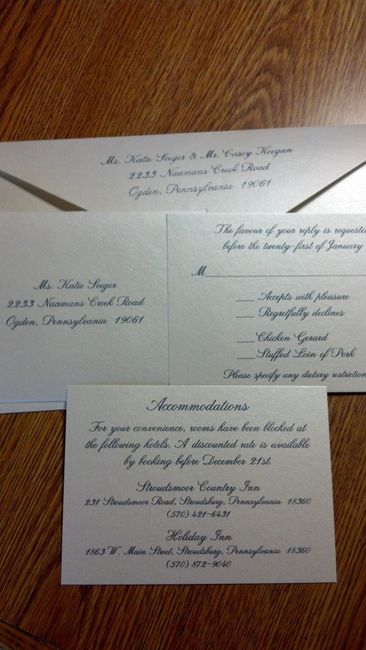 Ms. Katie Seeger & Mr. Casey Keegan
2233 Naamans Creek Road
Ogden, Pennsylvania 19061
Ms. Katie Seeger
2233 Naamans Creek Road
Ogden, Pennsylvania 19061
The favour of your reply is requested
before the twenty-first of January
M
Accepts with pleasure
Regretfully declines
Chicken Gerard
Stuffed Loin of Pork
Please specify any dietary restriction
Accommodations
For your convenience, rooms have been blocked at
the following hotels. A discounted rate is available
by booking before December 21st.
Stroudsmoor Country Inn
231 Stroudsmoor Road, Stroudsburg, Pennsylvania 18360
(570) 421-6431
Holiday Inn
1863 W. Main Street, Stroudsburg, Pennsylvania 18360
(570) 872-9040